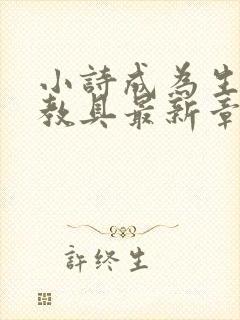 小詩成為生
教具最新章
許终生